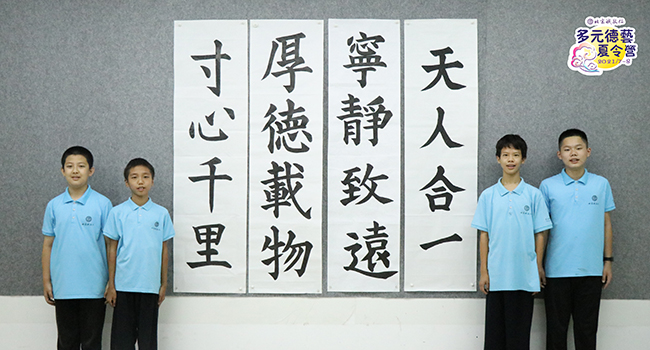 天人合一
寧靜致遠
厚德載物
寸心千里
多元德藝
夏令營
2021/7-8